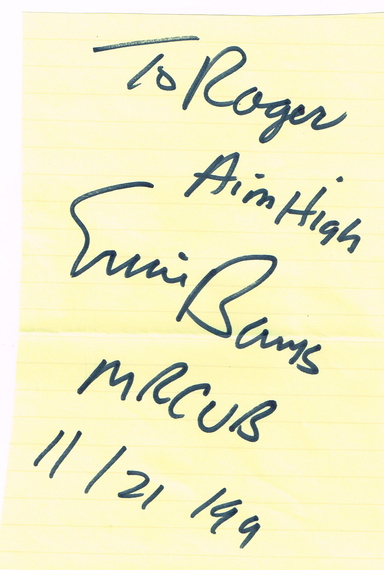 To Roger
Aim High
Ernie Banks
MR CUB
11/21/99